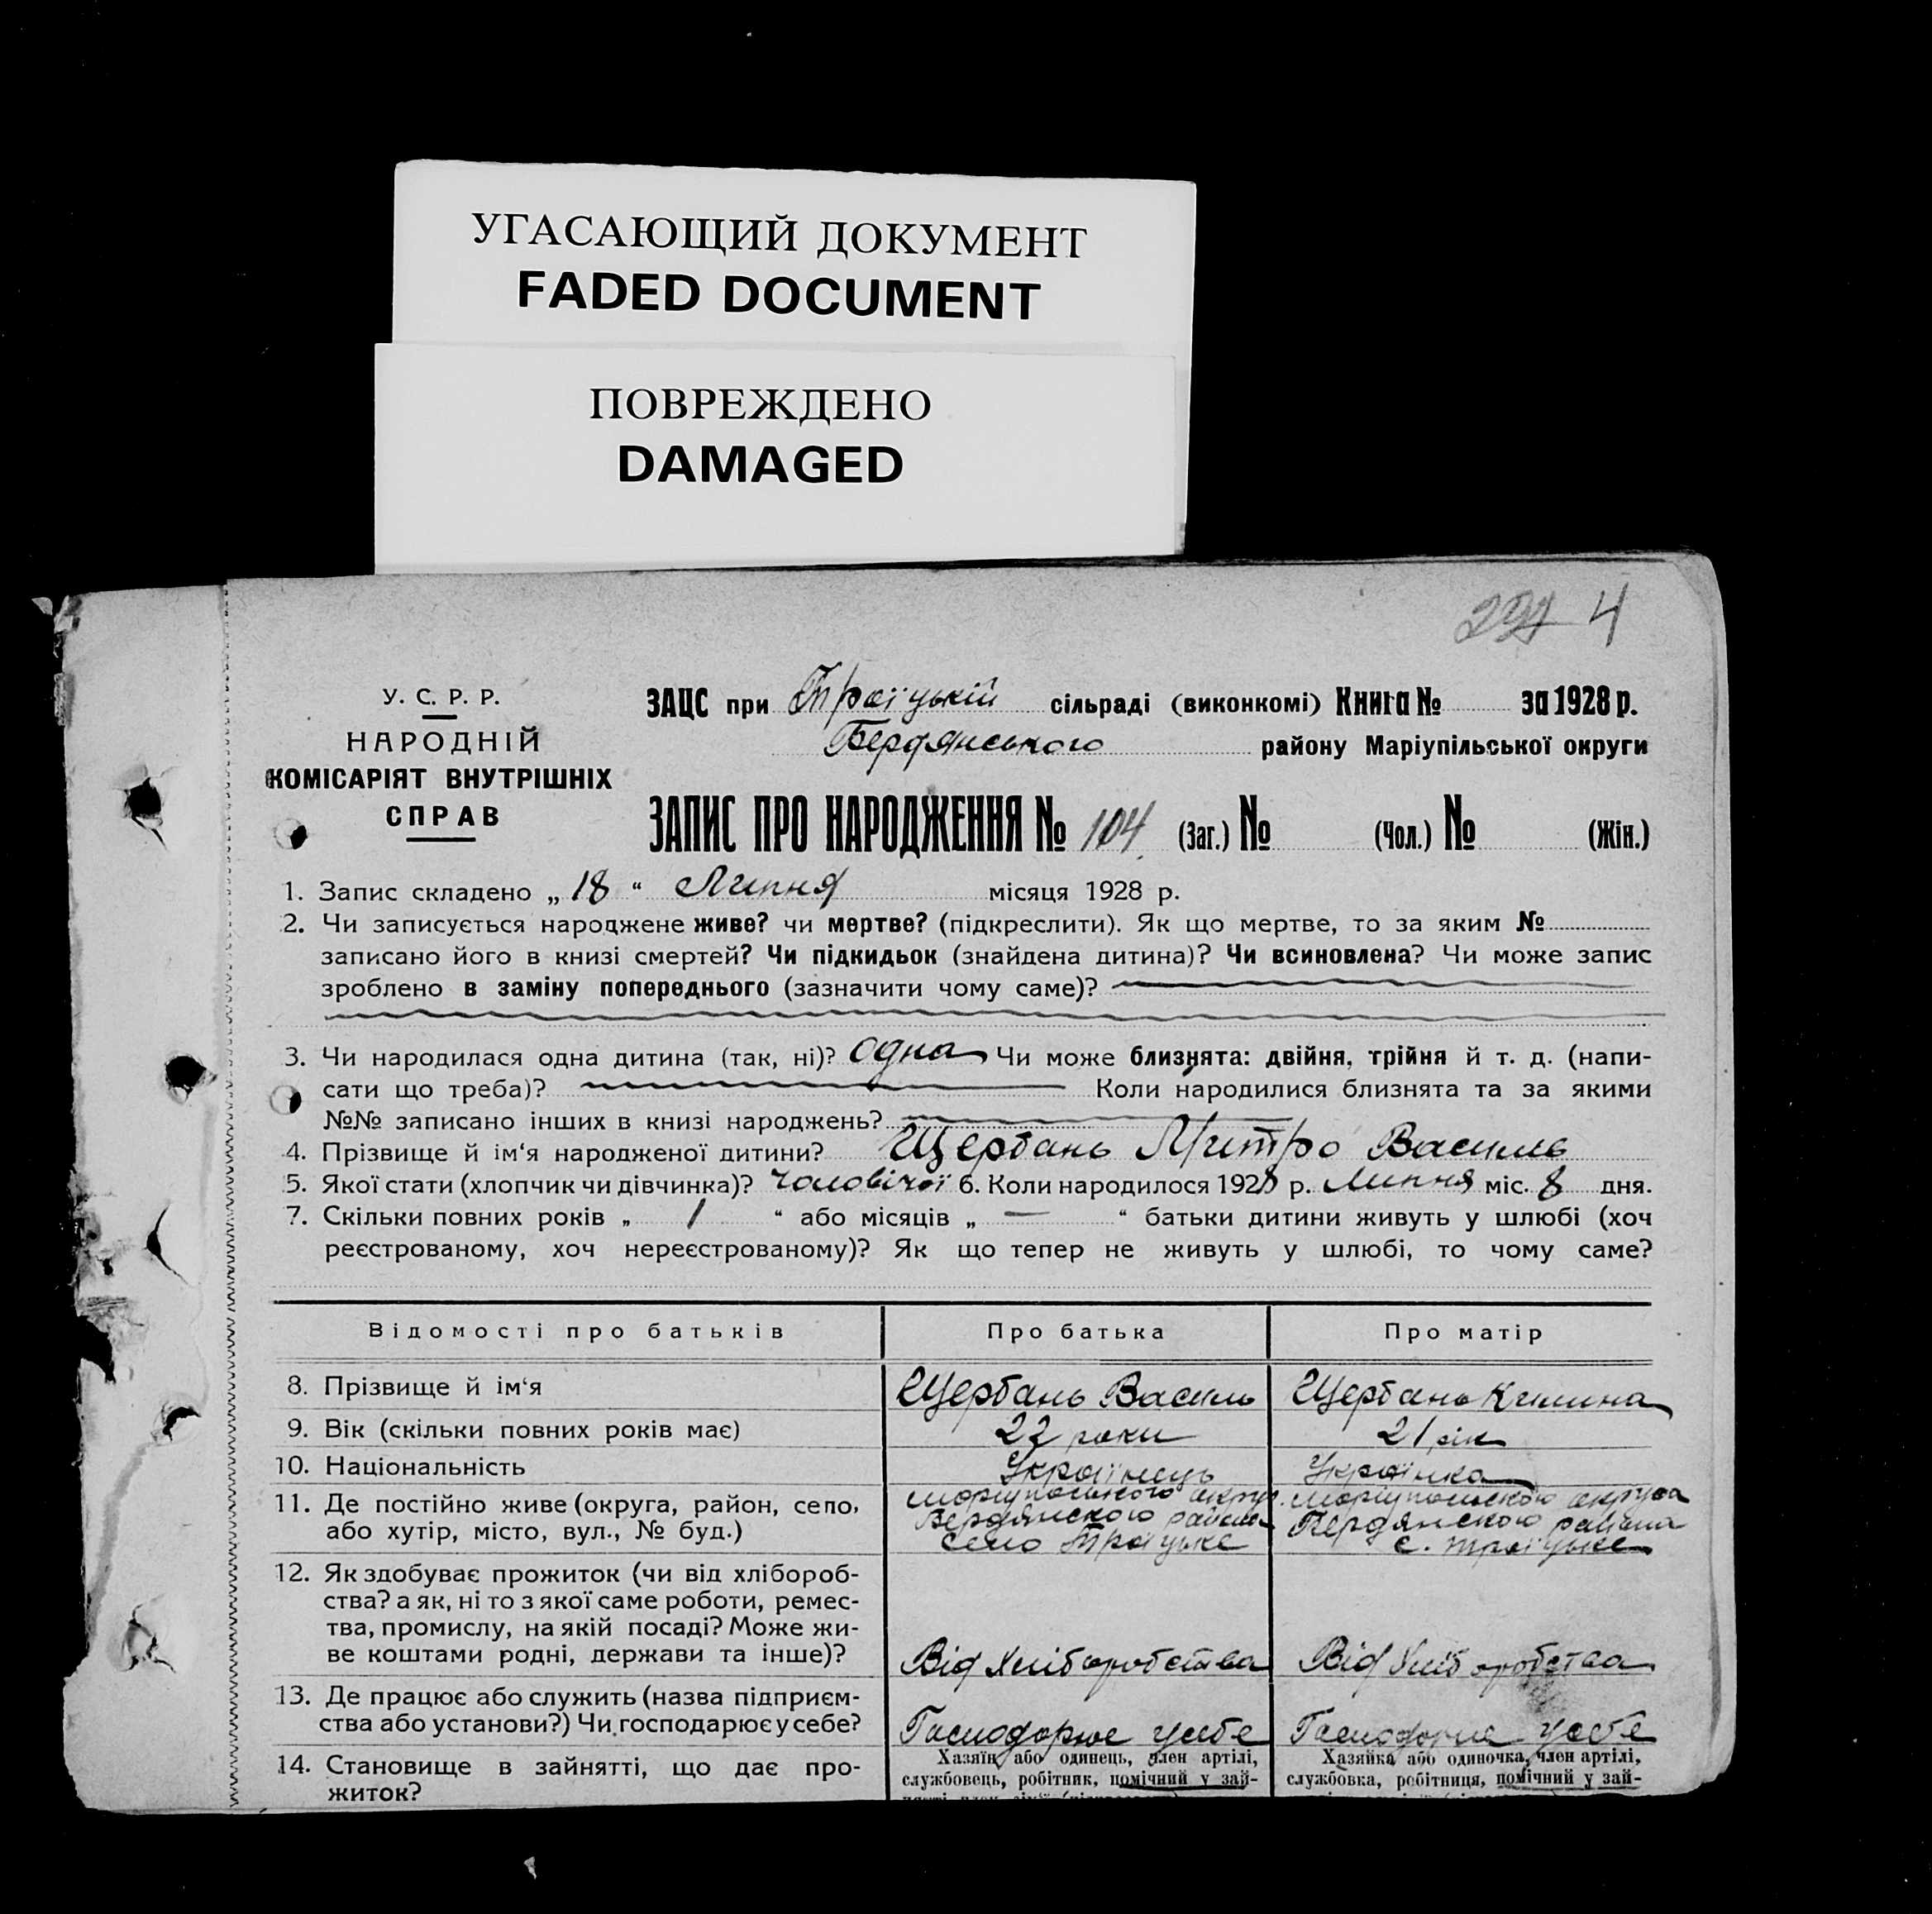 УГАСАЮЩИЙ ДОКУМЕНТ
FADED DOCUMENT
ПОВРЕЖДЕНО
DAMAGED
4
У. С. Р. Р.
НАРОДНІЙ
КОМІСАРІЯТ ВНУТРІШНІХ
СПРАВ
ЗАЦС при Троїцькій сільраді (виконкомі) Книга № за 1928 р.
Бердянського району Маріупільської округи
ЗАПИС ПРО НАРОДЖЕННЯ № 104 (Заг.) № (Чол.) № (Жін.)
1. Запис складено „ 18 “ Липня місяця 1928 р.
2. Чи записується народжене живе? чи мертве? (підкреслити). Як що мертве, то за яким №
записано його в книзі смертей? Чи підкидьок (знайдена дитина)? Чи всиновлена? Чи може запис
зроблено в заміну попереднього (зазначити чому саме)?
3. Чи народилася одна дитина (так, ні)? Одна Чи може близнята: двійня, трійня й т. д. (напи-
сати що треба)? Коли народилися близнята та за якими
№№ записано інших в книзі народжень?
4. Прізвище й ім‘я народженої дитини? Щербань Митро Василь
5. Якої стати (хлопчик чи дівчинка)? Чоловічої 6. Коли народилося 1928 р. Липня міс. 8 дня.
7. Скільки повних років „ 1 “ або місяців „ — “ батьки дитини живуть у шлюбі (хоч
реєстрованому, хоч нереєстрованому)? Як що тепер не живуть у шлюбі, то чому саме?
Відомості про батьків Про батька Про матір
8. Прізвище й ім‘я Щербань Василь Щербань Килина
9. Вік (скільки повних років має) 22 роки 21 рік
10. Національність Українець Українка
11. Де постійно живе (округа, район, село, Маріупольського округ. Маріупольского округа
або хутір, місто, вул., № буд.) Бердянского района Бердянского района
село Троїцьке с. Троїцьке
12. Як здобуває прожиток (чи від хлібороб-
ства? а як, ні то з якої саме роботи, ремес-
тва, промислу, на якій посаді? Може жи-
ве коштами родні, держави та інше)? Від Хліборобства Від Хліборобства
13. Де працює або служить (назва підприєм-
ства або установи?) Чи господарює у себе? Господорює усебе Господорює усебе
14. Становище в зайнятті, що дає про-
житок?
Хазяїн або одинець, член артілі,
службовець, робітник, помічний у зай-
Хазяйка або одиночка, член артілі,
службовка, робітниця, помічний у зай-